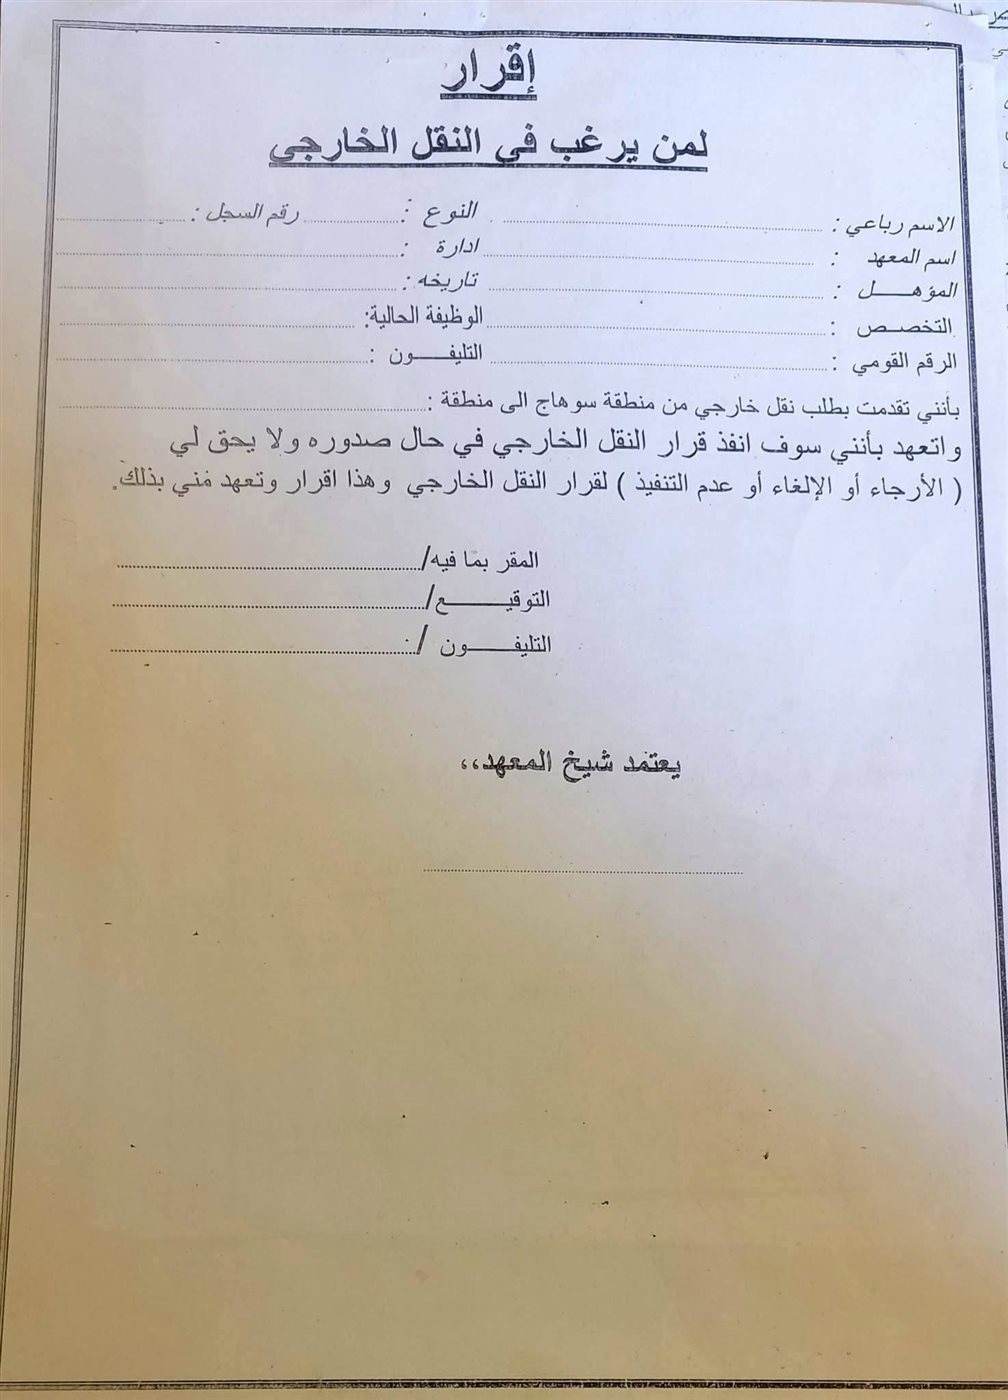 إقرار
لمن يرغب في النقل الخارجي
الاسم رباعي : ........................ النوع : ............ رقم السجل : ............
اسم المعهد : ........................ ادارة : ........................
المؤهـــــل : ........................ تاريخه : ........................
التخصـص : ........................ الوظيفة الحالية: ........................
الرقم القومي : ........................ التليفــــون : ........................
بأنني تقدمت بطلب نقل خارجي من منطقة سوهاج الى منطقة : ........................
و اتعهد بأنني سوف انفذ قرار النقل الخارجي في حال صدوره ولا يحق لي
( الأرجاء أو الإلغاء أو عدم التنفيذ ) لقرار النقل الخارجي وهذا اقرار وتعهد مني بذلك.
المقر بما فيه/ ........................
التوقيـــــــع/ ........................
التليفـــــون /: ........................
يعتمد شيخ المعهد،،
........................